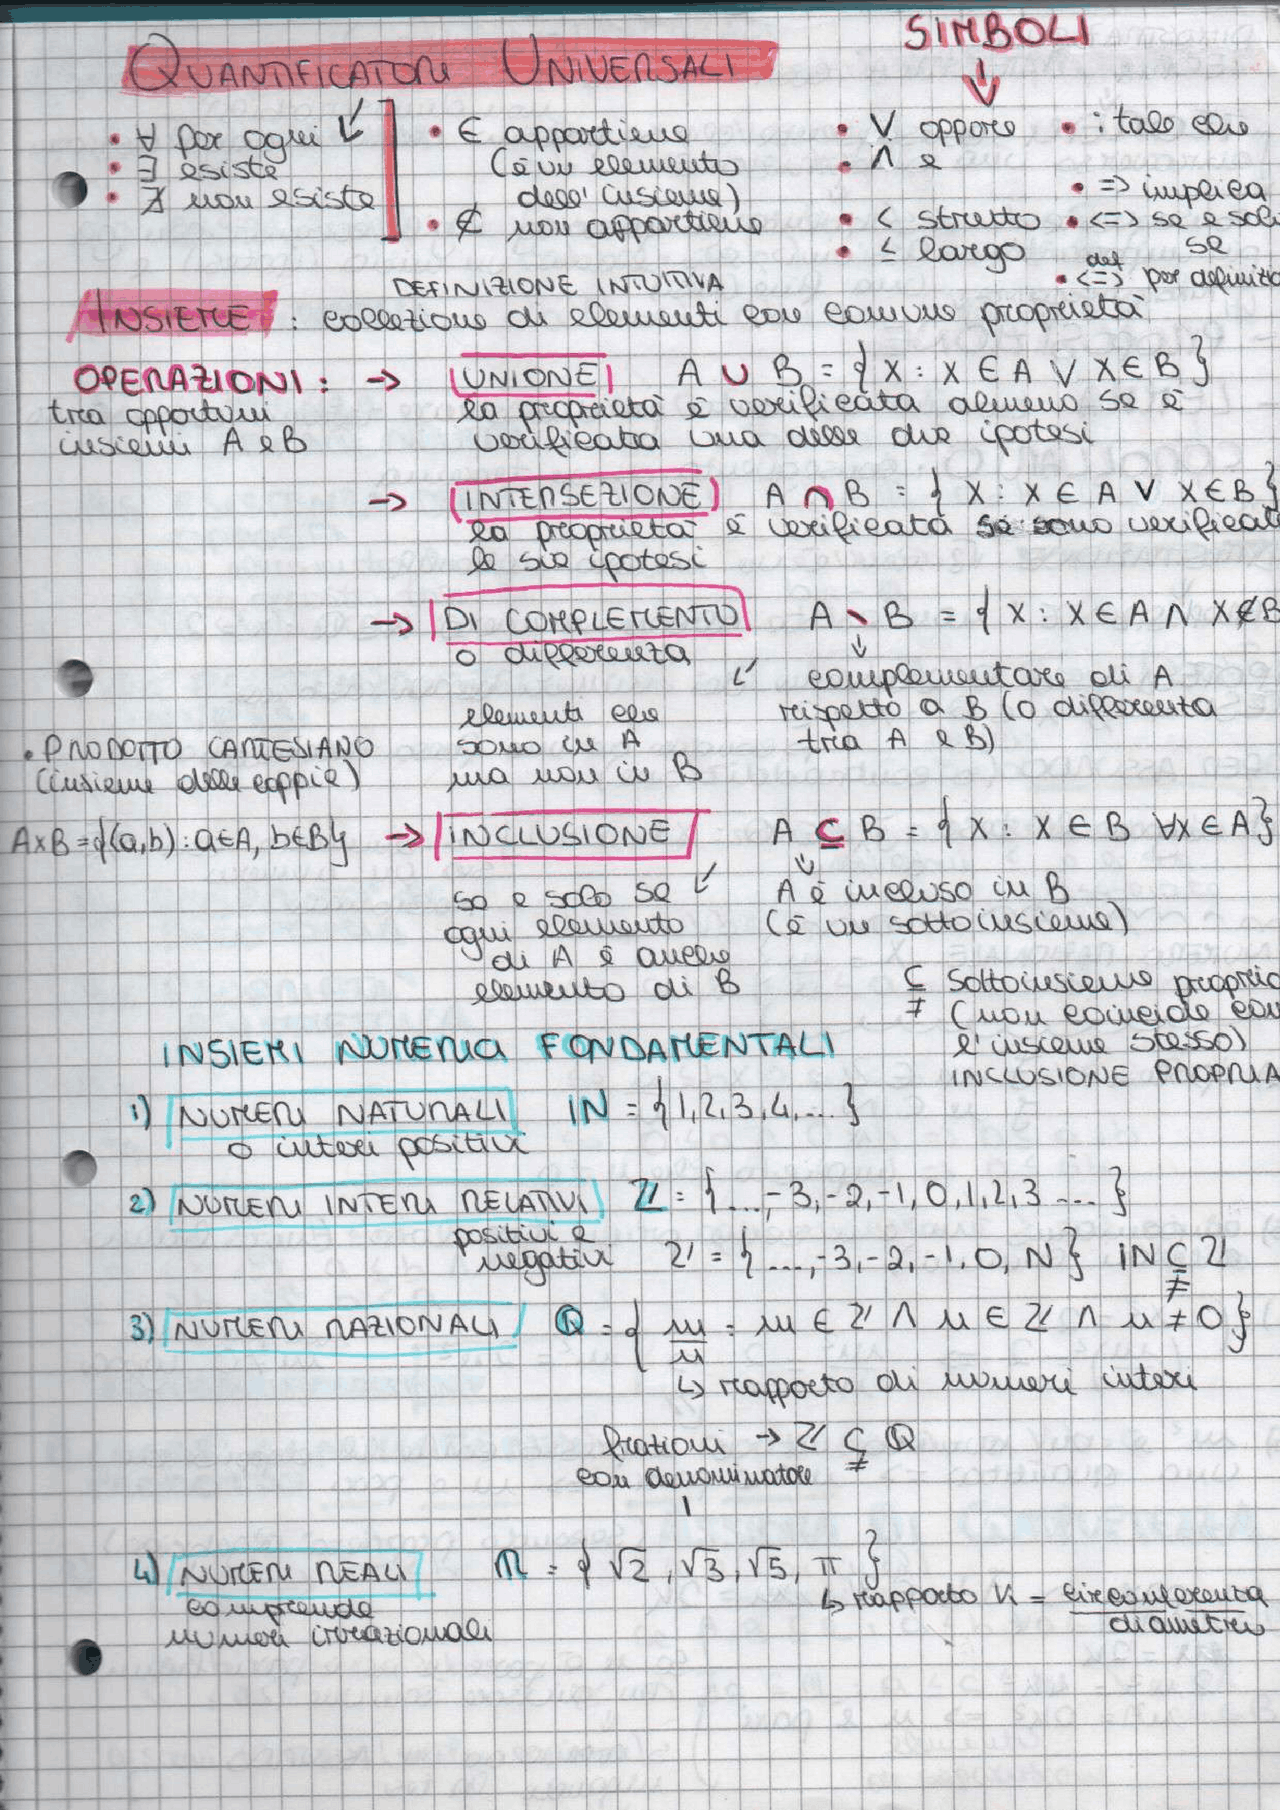 SIMBOLI
QUANTIFICATORI UNIVERSALI
• ∀ per ogni
• ∃ esiste
• ∄ non esiste
• ∈ appartiene
(è un elemento
dell'insieme)
• ∉ non appartiene
• ∨ oppure
• ∧ e
• < stretto
• ≤ largo
• : tale che
• => implica
• <=> se e solo
se
def
• <=> per definizio
DEFINIZIONE INTUITIVA
INSIEME : collezione di elementi con comune proprietà
OPERAZIONI: → UNIONE A ∪ B = { X : X ∈ A ∨ X ∈ B }
tra opportuni
insiemi A e B
la proprietà è verificata almeno se è
verificata una delle due ipotesi
→ INTERSEZIONE A ∩ B = { X : X ∈ A ∨ X ∈ B }
la proprietà è verificata se sono verificate
le sue ipotesi
→ DI COMPLEMENTO A \ B = { X : X ∈ A ∧ X ∉ B
o differenza
↙ complementare di A
rispetto a B (o differenza
tra A e B)
elementi che
sono in A
ma non in B
• PRODOTTO CARTESIANO
(insieme delle coppie)
A×B = {(a,b) : a∈A, b∈B}
→ INCLUSIONE A ⊆ B = { X : X ∈ B ∀X ∈ A }
se e solo se ↙
ogni elemento
di A è anche
elemento di B
A è incluso in B
(è un sottoinsieme)
⊊ Sottoinsieme proprio
(non coincide con
l'insieme stesso)
INCLUSIONE PROPRIA
INSIEMI NUMERICI FONDAMENTALI
1) NUMERI NATURALI ℕ = { 1, 2, 3, 4, ... }
o interi positivi
2) NUMERI INTERI RELATIVI ℤ = { ..., -3, -2, -1, 0, 1, 2, 3 ... }
positivi e
negativi ℤ = { ..., -3, -2, -1, 0, N } ℕ ⊊ ℤ
3) NUMERI RAZIONALI ℚ = { m/n : m ∈ ℤ ∧ n ∈ ℤ ∧ n ≠ 0 }
↳ rapporto di numeri interi
frazioni → ℤ ⊊ ℚ
con denominatore
1
4) NUMERI REALI ℝ = { √2, √3, √5, π }
comprende
numeri irrazionali
↳ rapporto K = circonferenza / diametro